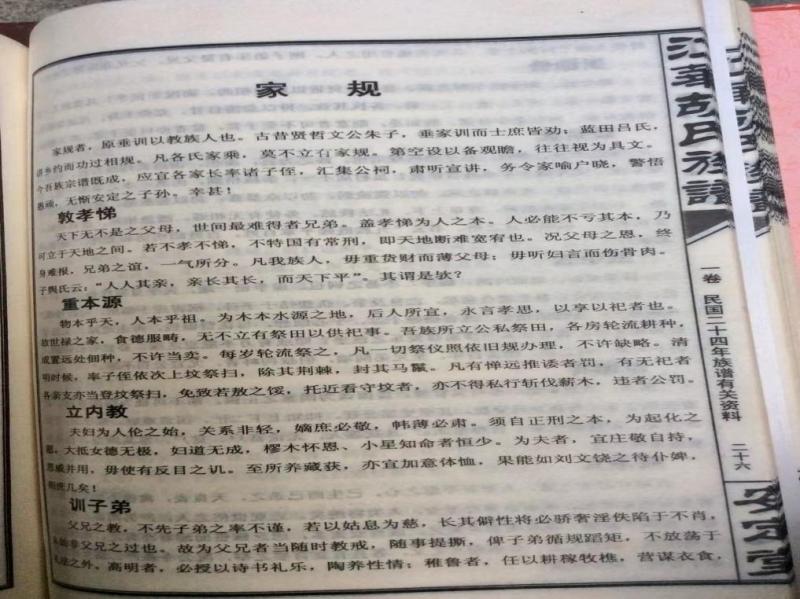 家规
家规者，原垂训以教族人也。古昔贤哲文公朱子，垂家训而士庶皆劝；蓝田吕氏，
乡约而功过相规。凡各氏家乘，莫不立有家规。第空设以备观瞻，往往视为具文。
今吾族宗谱既成，应宜各家长率诸子侄，汇集公祠，肃听宣讲，务令家喻户晓，警悟
愚顽，无惭安定之子孙。幸甚！
敦孝悌
天下无不是之父母，世间最难得者兄弟。盖孝悌为人之本。人必能不亏其本，乃
可立于天地之间。若不孝不悌，不特国有常刑，即天地断难宽宥也。况父母之恩，终
身难报，兄弟之谊，一气所分。凡我族人，毋重货财而薄父母；毋听妇言而伤骨肉。
子舆氏云：“人人其亲，亲长其长，而天下平”。其谓是欤？
重本源
物本乎天，人本乎祖。为木本水源之地，后人所宜，永言孝思，以享以祀者也。
故世禄之家，食德服畴，无不立有祭田以供祀事。吾族所立公私祭田，各房轮流耕种，
或置远处佃种，不许当卖。每岁轮流祭之，凡一切祭仪照依旧规办理，不许缺略。清
明时候，率子侄依次上坟祭扫，除其荆棘，封其马鬣。凡有惮远推诿者罚，有无祀者
各亲支亦当登坟祭扫，免致若敖之馁，托近看守坟者，亦不得私行斩伐薪木，违者公罚。
立内教
夫妇为人伦之始，关系非轻，嫡庶必敬，帏薄必肃。须自正刑之本，为起化之
大抵女德无极，妇道无成，樛木怀恩、小星知命者恒少。为夫者，宜庄敬自持，
恩威并用，毋使有反目之讥。至所养藏获，亦宜加意体恤，果能如刘文饶之待仆婢，
庶几矣！
训子弟
父兄之教，不先子弟之率不谨，若以姑息为慈，长其僻性将必骄奢淫佚陷于不肖，
父兄之过也。故为父兄者当随时教戒，随事提撕，俾子弟循规蹈矩，不放荡于
之外。高明者，必授以诗书礼乐，陶养性情；稚鲁者，任以耕稼牧樵，营谋衣食，
江华胡氏族谱
一卷 民国二十四年族谱有关资料
二十六
安定堂